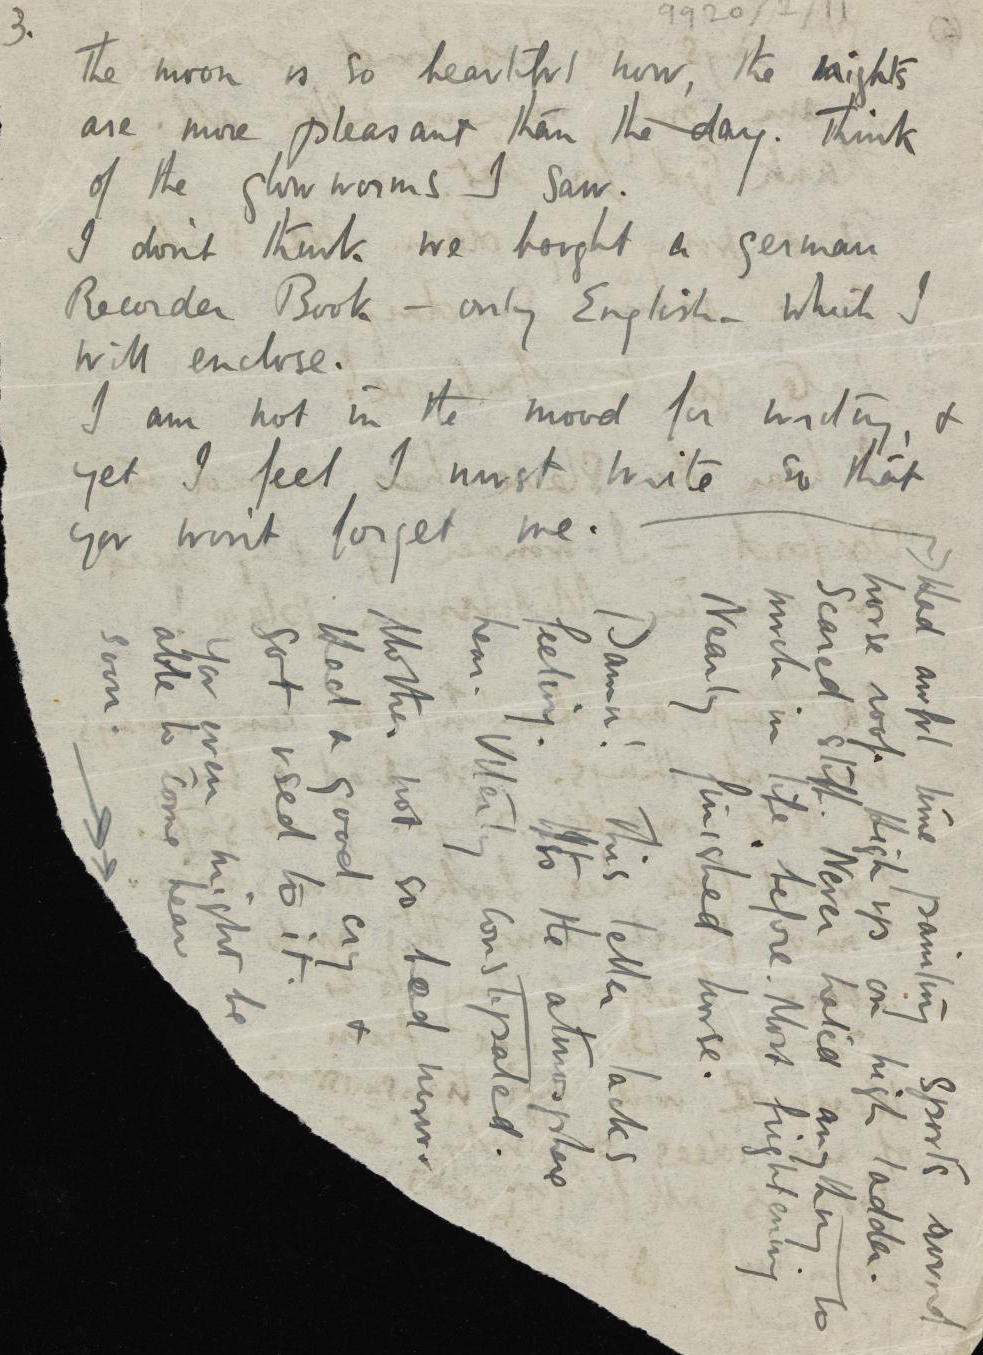 3.
9920/2/11
The moon is so beautiful now, the nights
are more pleasant than the day. Think
of the glow worms I saw.
I don't think we bought a german
Recorder Book – only English – which I
will enclose.
I am not in the mood for writing, &
yet I feel I must write so that
you won't forget me.
Had awful time painting spouts round
house roof. High up on high ladder.
Scared stiff. Never hated anything to
much in life before. Most frightening.
Nearly finished house.
Damn! This letter lacks
feeling. It's the atmosphere
hear. Utterly constipated.
Mother not so bad now.
Had a good cry &
got used to it.
You even might be
able to come hear
soon.